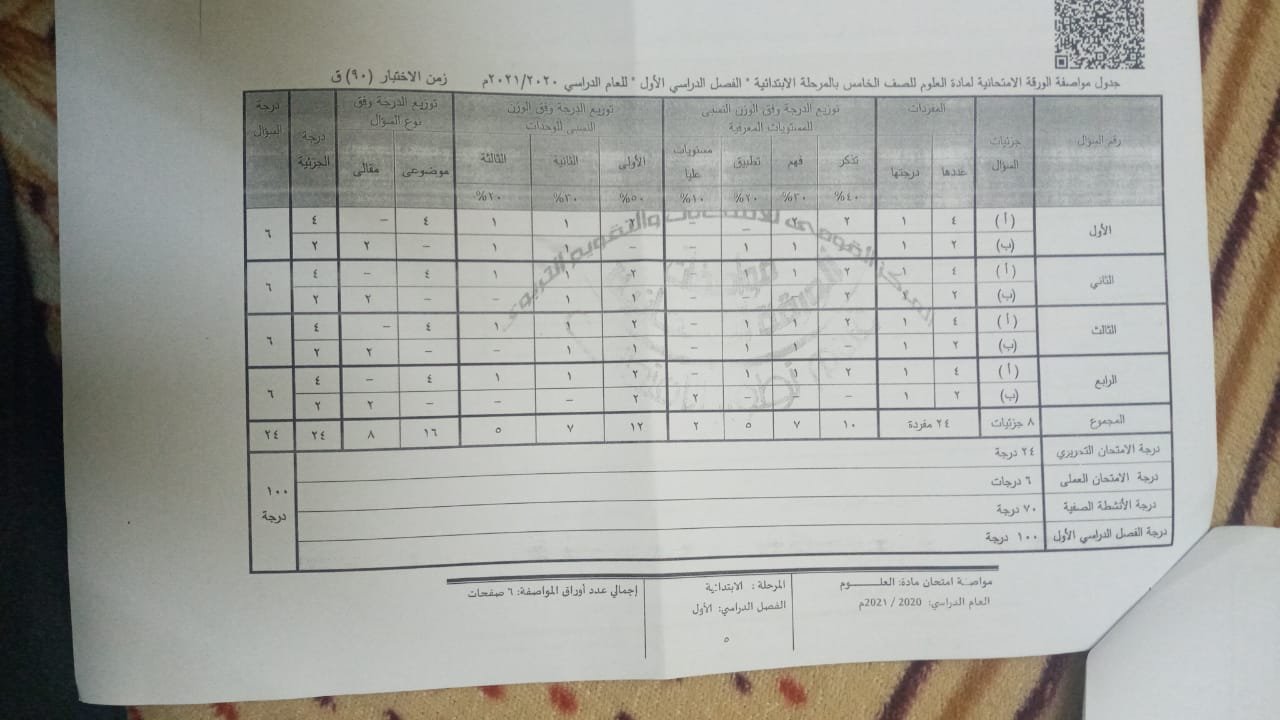 جدول مواصفة الورقة الامتحانية لمادة العلوم للصف الخامس بالمرحلة الابتدائية " الفصل الدراسي الأول " للعام الدراسي ٢٠٢١/٢٠٢٠م زمن الاختبار (٩٠) ق
رقم السؤال جزئيات السؤال المفردات توزيع الدرجة وفق الوزن النسبي للمستويات المعرفية توزيع الدرجة وفق الوزن النسبي للوحدات توزيع الدرجة وفق نوع السؤال درجة الجزئية درجة السؤال
عددها درجتها تذكر فهم تطبيق مستويات عليا الأولى الثانية الثالثة موضوعى مقالى
%٤٠ %٣٠ %٢٠ %١٠ %٥٠ %٣٠ %٢٠
الأول (أ) ٤ ١ ٢ ٢ – – ٢ ١ ١ ٤ – ٤ ٦
(ب) ٢ ١ – ١ ١ – – ١ ١ – ٢ ٢
الثاني (أ) ٤ ١ ٢ ١ ١ – ٢ ١ ١ ٤ – ٤ ٦
(ب) ٢ ١ ٢ – – – ١ ١ – – ٢ ٢
الثالث (أ) ٤ ١ ٢ ١ ١ – ٢ ١ ١ ٤ – ٤ ٦
(ب) ٢ ١ – ١ ١ – ١ ١ – – ٢ ٢
الرابع (أ) ٤ ١ ٢ ١ ١ – ٢ ١ ١ ٤ – ٤ ٦
(ب) ٢ ١ – – – ٢ ٢ – – – ٢ ٢
المجموع ٨ جزئيات ٢٤ مفردة ١٠ ٧ ٥ ٢ ١٢ ٧ ٥ ١٦ ٨ ٢٤ ٢٤
درجة الامتحان التحريري ٢٤ درجة
درجة الامتحان العملى ٦ درجات
درجة الأنشطة الصفية ٧٠ درجة
درجة الفصل الدراسي الأول ١٠٠ درجة
١٠٠ درجة
مواصفة امتحان مادة: العلـــــوم
العام الدراسي: 2020 / 2021م
المرحلة : الابتدائية
الفصل الدراسي: الأول
٥
إجمالي عدد أوراق المواصفة: ٦ صفحات